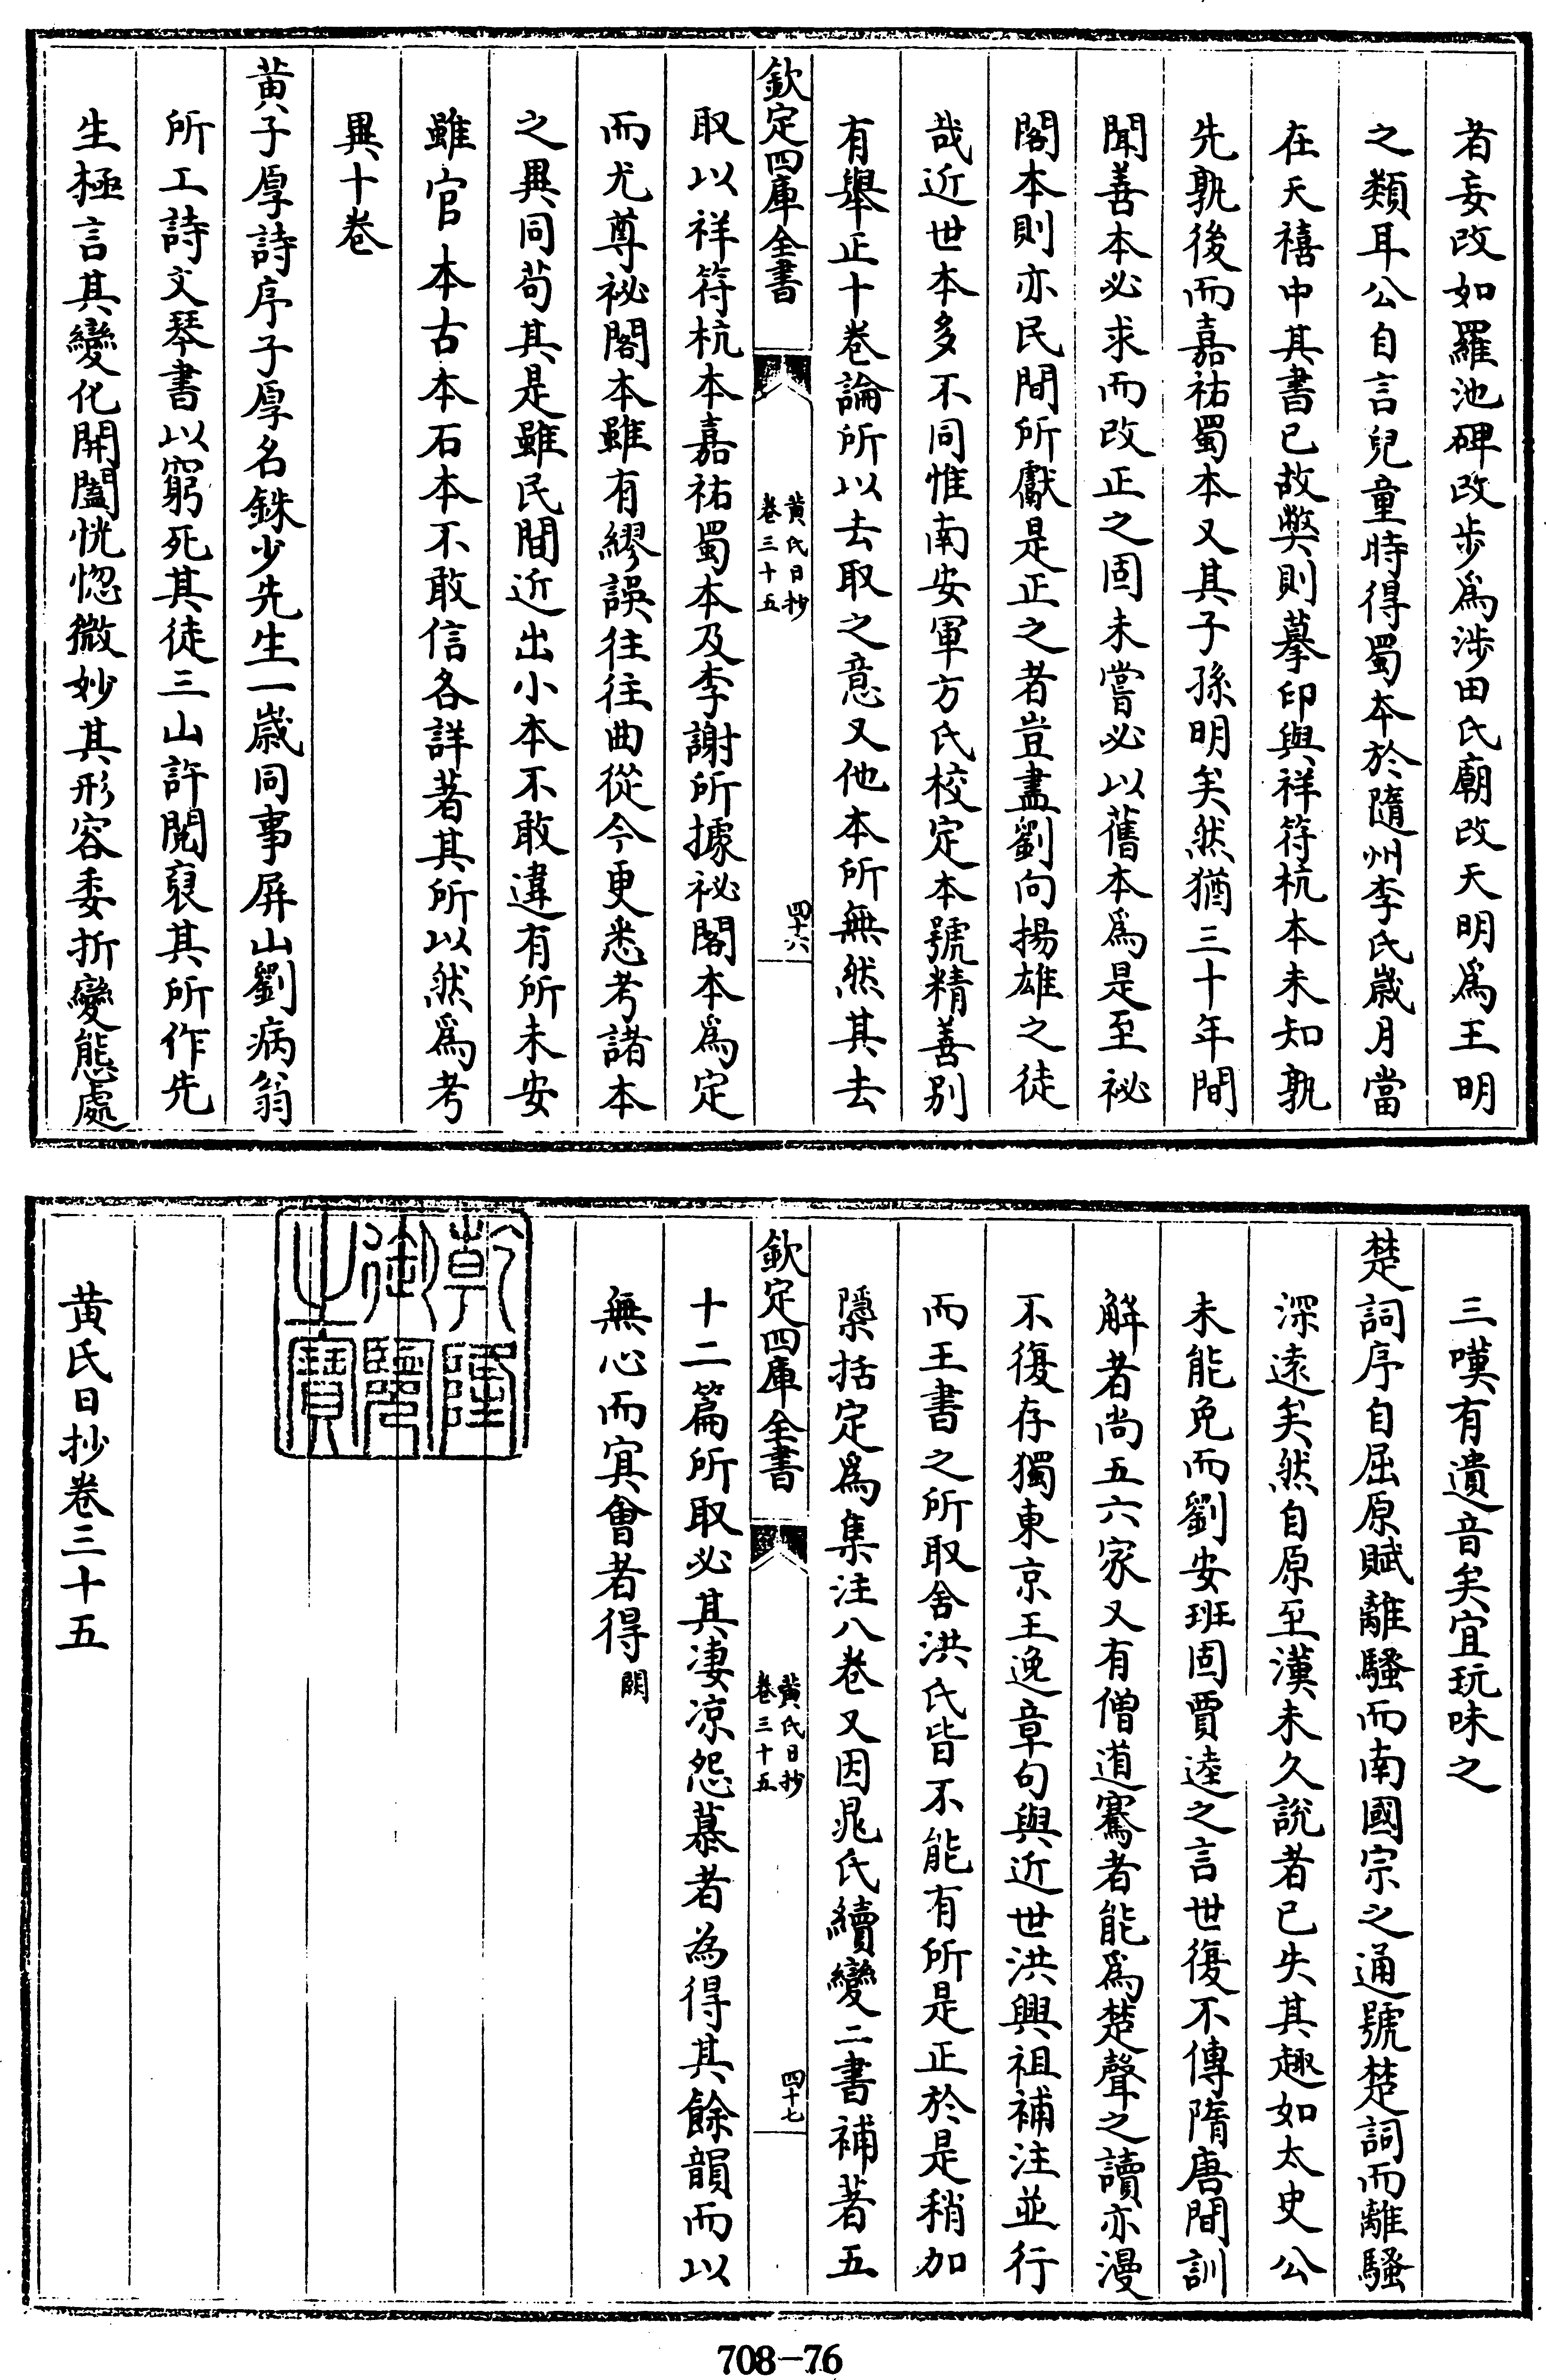 者妄改如羅池碑改步爲涉田氏廟改天明爲王明
之類耳公自言兒童時得蜀本於隨州李氏歲月當
在天禧中其書已故弊則摹印與祥符杭本未知孰
先孰後而嘉祐蜀本又其子孫明矣然猶三十年間
聞善本必求而改正之固未嘗必以舊本爲是至祕
閣本則亦民間所獻是正之者豈盡劉向揚雄之徒
哉近世本多不同惟南安軍方氏校定本號精善别
有舉正十卷論所以去取之意又他本所無然其去
欽定四庫全書
黃氏日抄
卷三十五
四十六
取以祥符杭本嘉祐蜀本及李謝所據祕閣本爲定
而尤尊祕閣本雖有繆誤往往曲從今更悉考諸本
之異同苟其是雖民間近出小本不敢違有所未安
雖官本古本石本不敢信各詳著其所以然爲考
異十卷
黃子厚詩序子厚名銖少先生一歲同事屏山劉病翁
所工詩文琴書以窮死其徒三山許閎裒其所作先
生極言其變化開闔恍惚微妙其形容委折變態處
三嘆有遺音矣宜玩味之
楚詞序自屈原賦離騷而南國宗之通號楚詞而離騷
深遠矣然自原至漢未久說者已失其趣如太史公
未能免而劉安班固賈逵之言世復不傳隋唐間訓
解者尚五六家又有僧道騫者能爲楚聲之讀亦漫
不復存獨東京王逸章句與近世洪興祖補注並行
而王書之所取舍洪氏皆不能有所是正於是稍加
檃括定爲集注八卷又因晁氏續變二書補著五
欽定四庫全書
黃氏日抄
卷三十五
四十七
十二篇所取必其凄凉怨慕者為得其餘韻而以
無心而㝠會者得闕
乾隆御覽之寶
黃氏日抄卷三十五
708-76